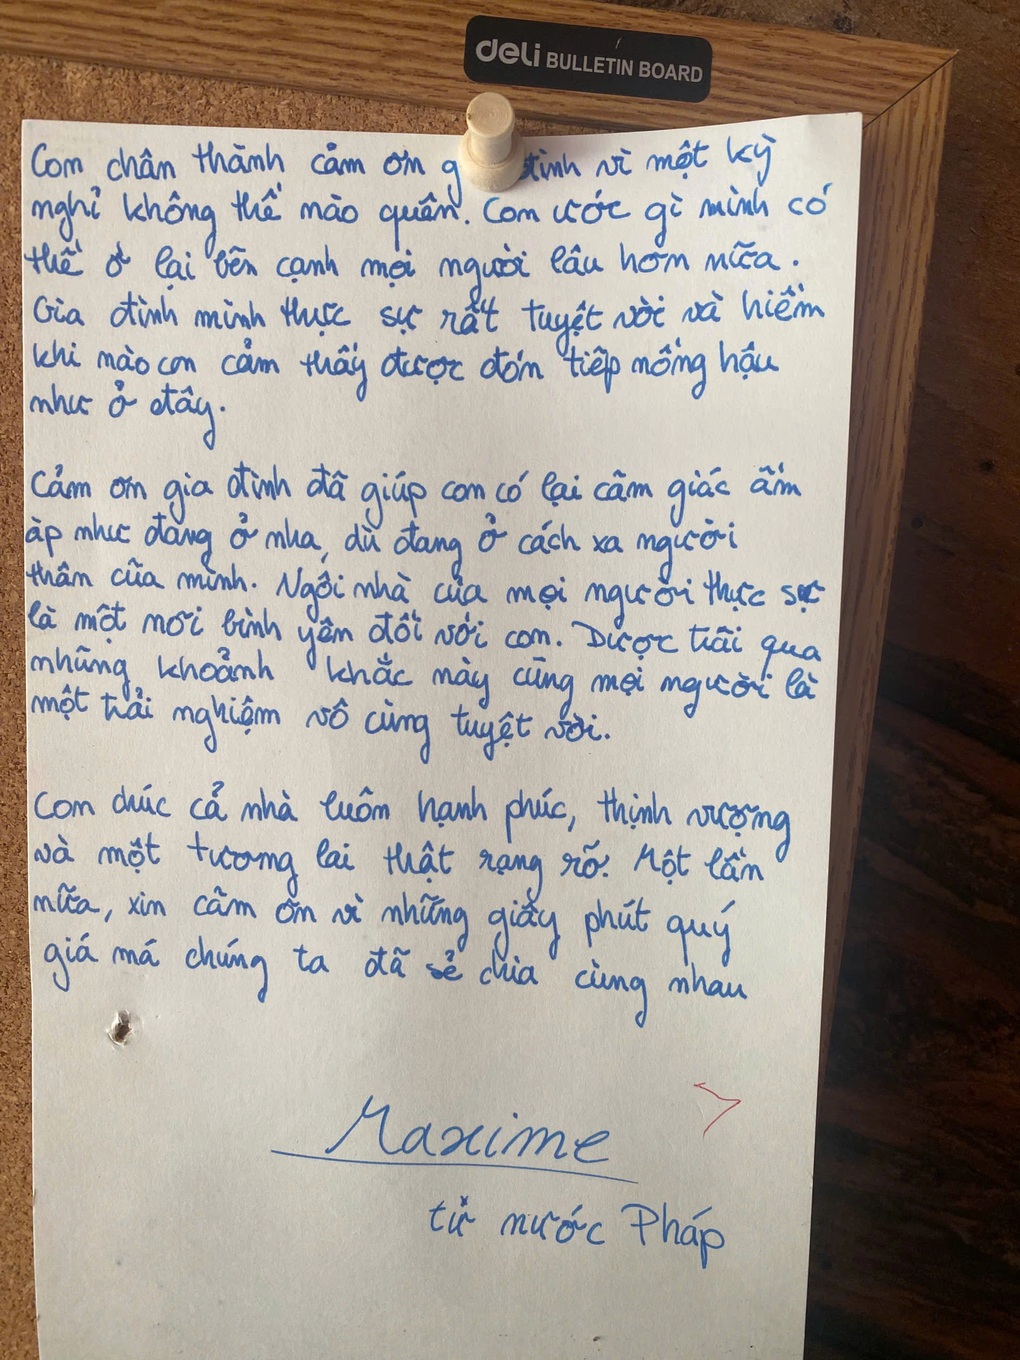 deli BULLETIN BOARD
Con chân thành cảm ơn g đình vì một kỳ
nghỉ không thể nào quên. Con ước gì mình có
thể ở lại bên cạnh mọi người lâu hơn nữa.
Gia đình mình thực sự rất tuyệt vời và hiếm
khi nào con cảm thấy được đón tiếp nồng hậu
như ở đây.
Cảm ơn gia đình đã giúp con có lại cãm giác ấm
áp như đang ở nha, dù đang ở cách xa người
thân cũa mình. Ngôi nhà của mọi người thực sự
là một nơi bình yên đối với con. Dược trãi qua
nhũng khoảnh khắc này cùng mọi người là
một trải nghiệm vô cùng tuyệt vời.
Con chúc cả nhà luôn hạnh phúc, thịnh vượng
và một tương lai thật rạng rỡ. Một lần
nữa, xin cãm ơn vì những giây phút quý
giá má chúng ta đã sẻ chia cùng nhau
Maxime
từ nước Pháp